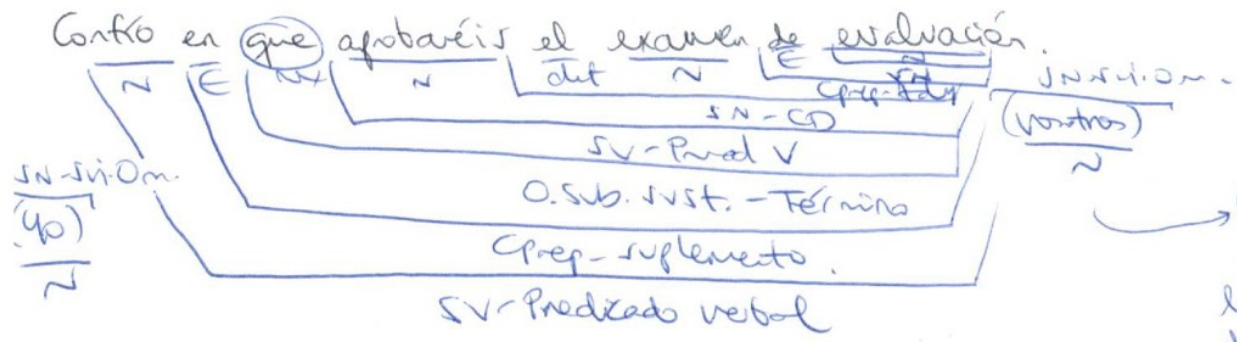 Confío en que aprobaréis el examen de evaluación.
N E NX N det N E N
SN
Cprep-Ady SN-Suj.Om.
SN-CD (vosotros)
SV-Pred V N
SN-Suj.Om. O.Sub.sust.-Término
(yo) Cprep-suplemento.
N
SV-Predicado verbal